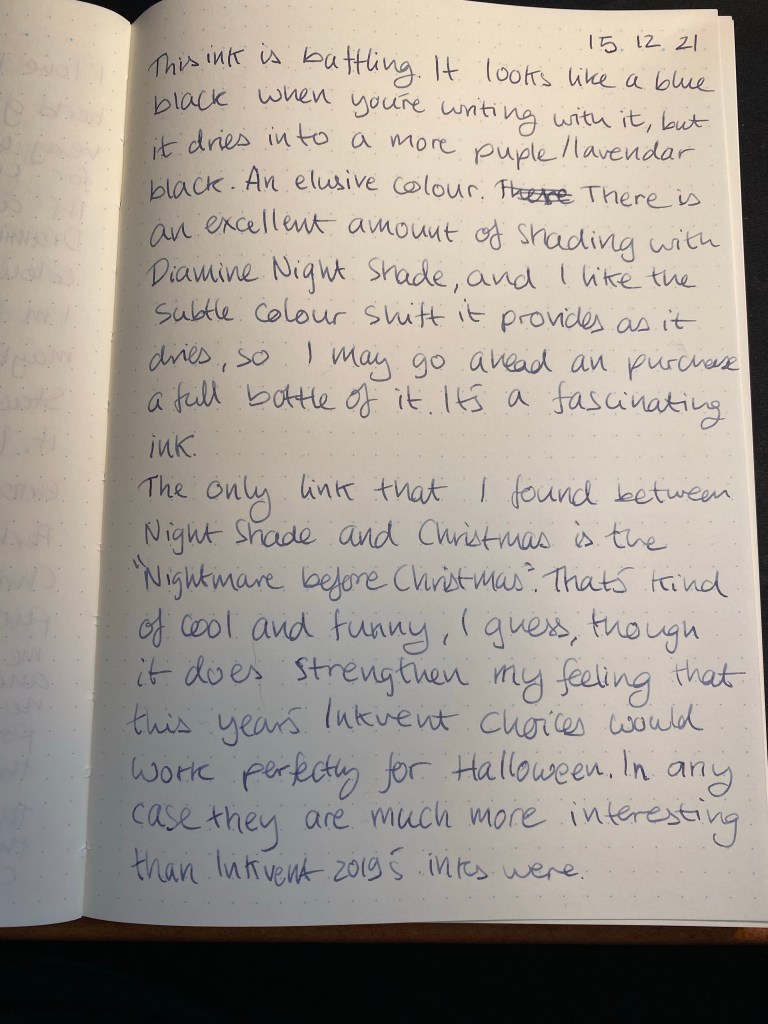 15.12.21
This ink is baffling. It looks like a blue
black when you're writing with it, but
it dries into a more puple/lavendar
black. An elusive colour. There There is
an excellent amount of shading with
Diamine Night Shade, and I like the
subtle colour shift it provides as it
dries, so I may go ahead an purchase
a full bottle of it. It's a fascinating
ink.
The only link that I found between
Night Shade and Christmas is the
"Nightmare before Christmas". That's kind
of cool and funny, I guess, though
it does strengthen my feeling that
this year's Inkvent choices would
work perfectly for Halloween. In any
case they are much more interesting
than Inkvent 2019's inks were.